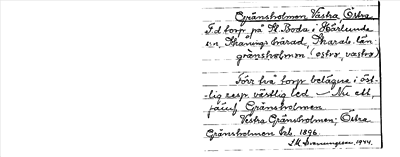 Gränsholmen Västra Östra
F.d torp på St. Boda i Härlunda
sn, Skånings härad, Skarab. län
gränsholmen (östra, västra)
Förr två torp belägna i öst-
lig resp. västlig led — Nu ett,
Gränsholmen.
Västra Gränsholmen, Östra
Gränsholmen 1896
1944.